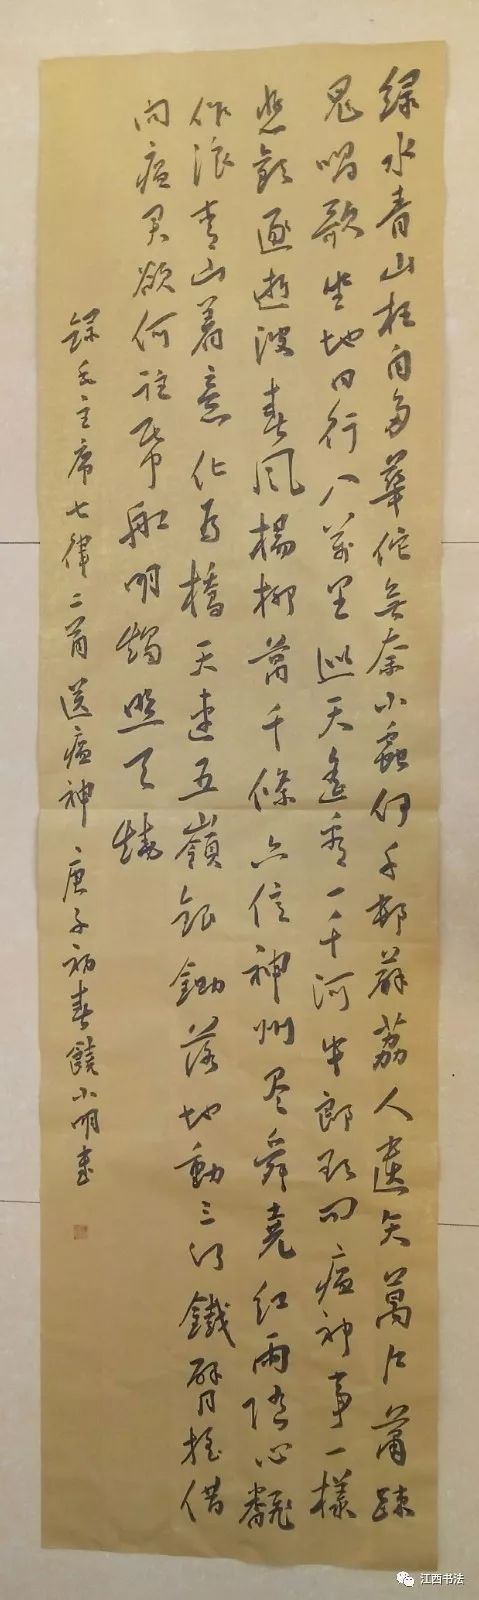 緑水青山枉自多華佗無奈小蟲何千邨薜荔人遺矢萬户蕭疎
鬼唱歌坐地日行八萬里巡天遥看一千河牛郎欲问瘟神事一樣
悲歡逐逝波春風楊柳萬千條六億神州尽舜尭紅雨随心翻
作浪青山着意化为橋天連五嶺銀鋤落地動三河鐵臂摇借
问瘟君欲何往帋船明燭照天燒
録毛主席七律二首送瘟神 庚子初春饒小明書
江西书法